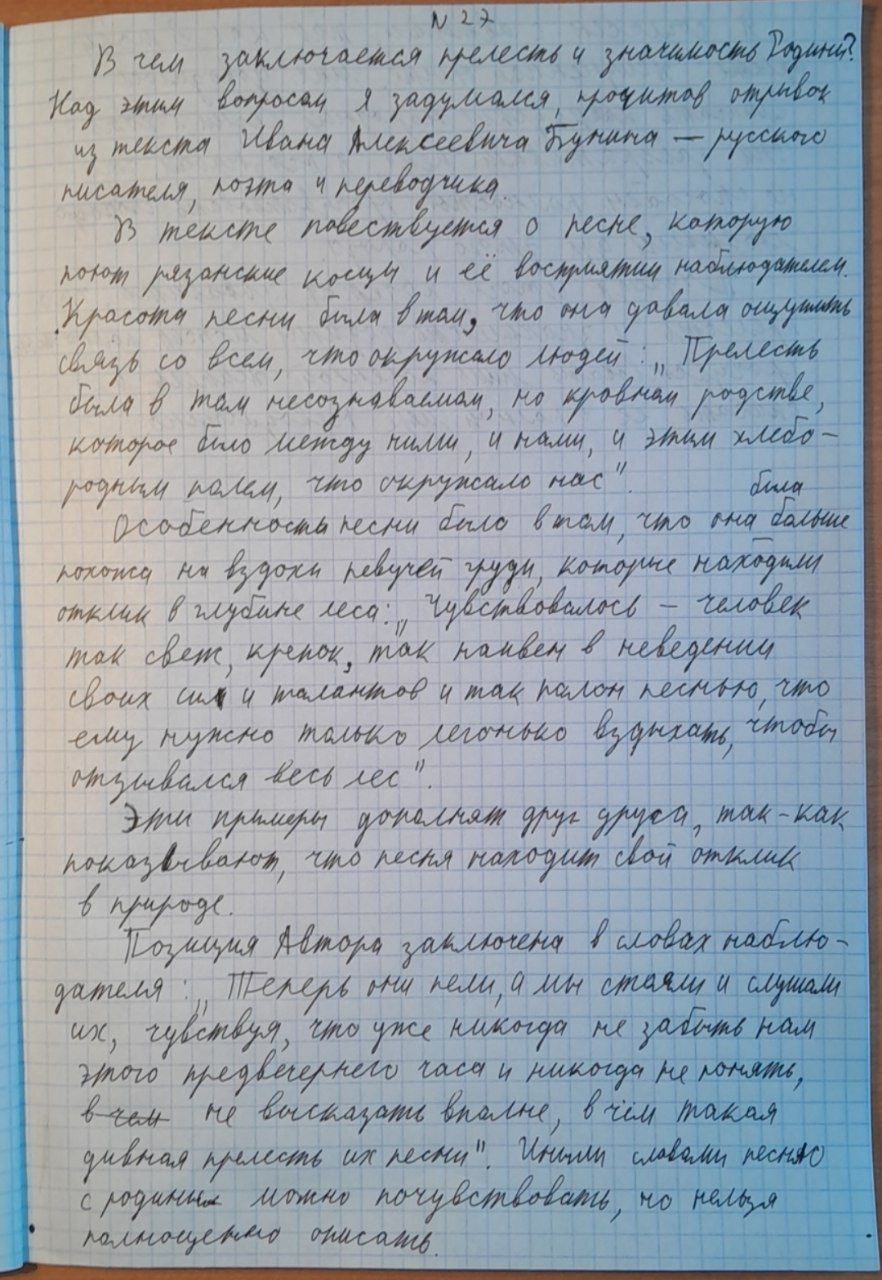 N 27
В чем заключается прелесть и значимость Родины?
Над этим вопросом я задумался, прочитов отрывок
из текста Ивана Алексеевича Бунина — русского
писателя, поэта и переводчика.
В тексте повествуется о песне, которую
поют рязанские косцы и её восприятии наблюдателем.
Красота песни была в том, что она давала ощутить
связь со всем, что окружало людей: „Прелесть
была в том несознаваемом, но кровном родстве,
которое было между ними, и нами, и этим хлебо-
родным полем, что окружало нас".
Особенность песни было в том, что она была больше
похожа на вздохи певучей груди, которые находили
отклик в глубине леса: „Чувствовалось – человек
так свеж, крепок, так наивен в неведении
своих сил и талантов и так полон песнью, что
ему нужно только легонько вздыхать, чтобы
отзывался весь лес".
Эти примеры дополнят друг друга, так-как
показывают, что песня находит свой отклик
в природе.
Позиция Автора заключена в словах наблю-
дателя: „Теперь они пели, а мы стояли и слушали
их, чувствуя, что уже никогда не забыть нам
этого предвечернего часа и никогда не понять,
в чем не высказать вполне, в чём такая
дивная прелесть их песни". Иными словами песню
с родины можно почувствовать, но нельзя
полноценно описать.